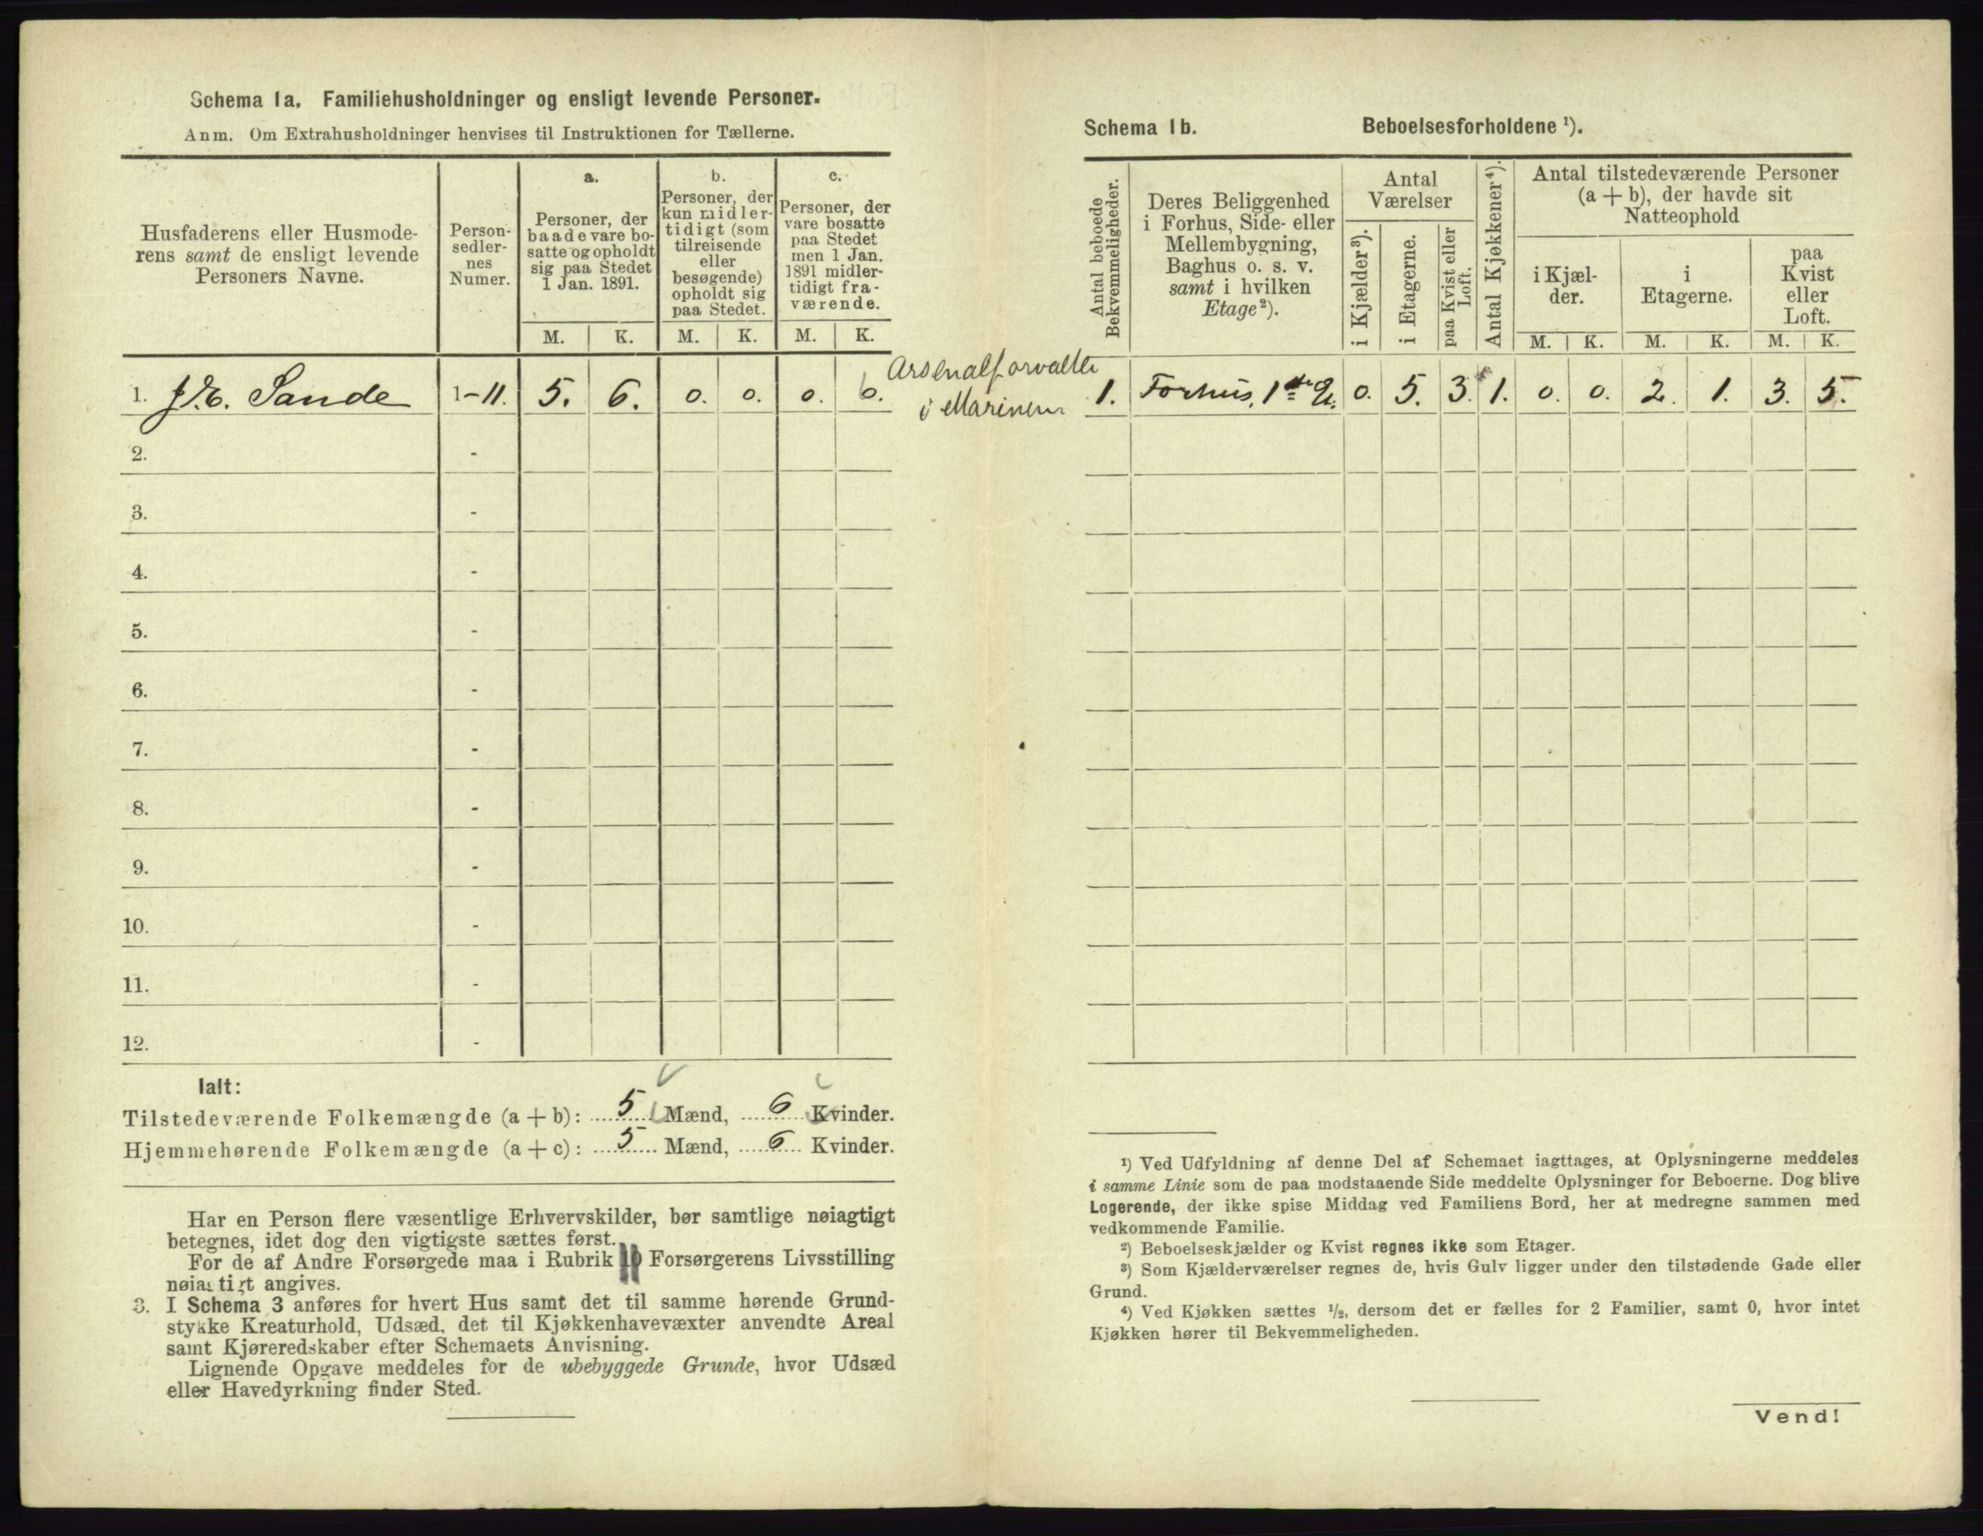 Schema 1a. Familiehusholdninger og ensligt levende Personer.
Anm. Om Extrahusholdninger henvises til Instruktionen for Tællerne.
Husfaderens eller Husmode-
rens samt de ensligt levende
Personers Navne.
Person-
sedler-
nes
Numer.
a.
Personer, der
baade vare bo-
satte og opholdt
sig paa Stedet
1 Jan. 1891.
b.
Personer, der
kun midler-
tidigt (som
tilreisende
eller
besøgende)
opholdt sig
paa Stedet.
c.
Personer, der
vare bosatte
paa Stedet
men 1 Jan.
1891 midler-
tidigt fra-
værende.
M. K. M. K. M. K.
1. Sande 1-11. 5. 6. 0. 0. 0. 0.
Arsenalforvalter
i Marinen
2. -
3. -
4. -
5. -
6. -
7. -
8. -
9. -
10. -
11. -
12. -
Ialt:
Tilstedeværende Folkemængde (a + b): 5 Mænd, 6 Kvinder.
Hjemmehørende Folkemængde (a + c): 5 Mænd, 6 Kvinder.
Har en Person flere væsentlige Erhvervskilder, bør samtlige nøiagtigt
betegnes, idet dog den vigtigste sættes først.
For de af Andre Forsørgede maa i Rubrik 10 Forsørgerens Livsstilling
nøiagtigt angives.
3. I Schema 3 anføres for hvert Hus samt det til samme hørende Grund-
stykke Kreaturhold, Udsæd, det til Kjøkkenhavevæxter anvendte Areal
samt Kjøreredskaber efter Schemaets Anvisning.
Lignende Opgave meddeles for de ubebyggede Grunde, hvor Udsæd
eller Havedyrkning finder Sted.
Schema 1b. Beboelsesforholdene ¹).
Antal beboede
Bekvemmeligheder.
Deres Beliggenhed
i Forhus, Side- eller
Mellembygning,
Baghus o. s. v.
samt i hvilken
Etage²).
Antal
Værelser
i Kjælder³).
i Etagerne.
paa Kvist eller
Loft.
Antal Kjøkkener⁴).
Antal tilstedeværende Personer
(a + b), der havde sit
Natteophold
i Kjæl-
der.
i
Etagerne.
paa
Kvist
eller
Loft.
M. K. M. K. M. K.
1. Forhus, 1ste E. 0. 5. 3. 1. 0. 0. 2. 1. 3. 5.
¹) Ved Udfyldning af denne Del af Schemaet iagttages, at Oplysningerne meddeles
i samme Linie som de paa modstaaende Side meddelte Oplysninger for Beboerne. Dog blive
Logerende, der ikke spise Middag ved Familiens Bord, her at medregne sammen med
vedkommende Familie.
²) Beboelseskjælder og Kvist regnes ikke som Etager.
³) Som Kjælderværelser regnes de, hvis Gulv ligger under den tilstødende Gade eller
Grund.
⁴) Ved Kjøkken sættes ½, dersom det er fælles for 2 Familier, samt 0, hvor intet
Kjøkken hører til Bekvemmeligheden.
Vend!